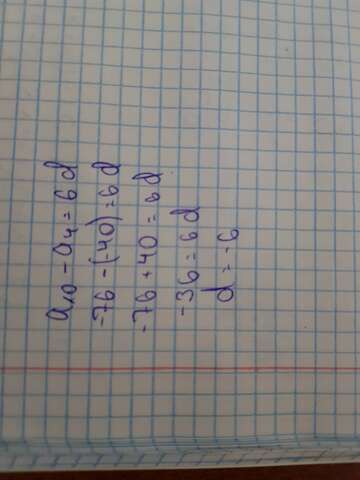 a₁₀ - a₄ = 6 d
-76 - (-40) = 6 d
-76 + 40 = 6 d
-36 = 6 d
d = -6